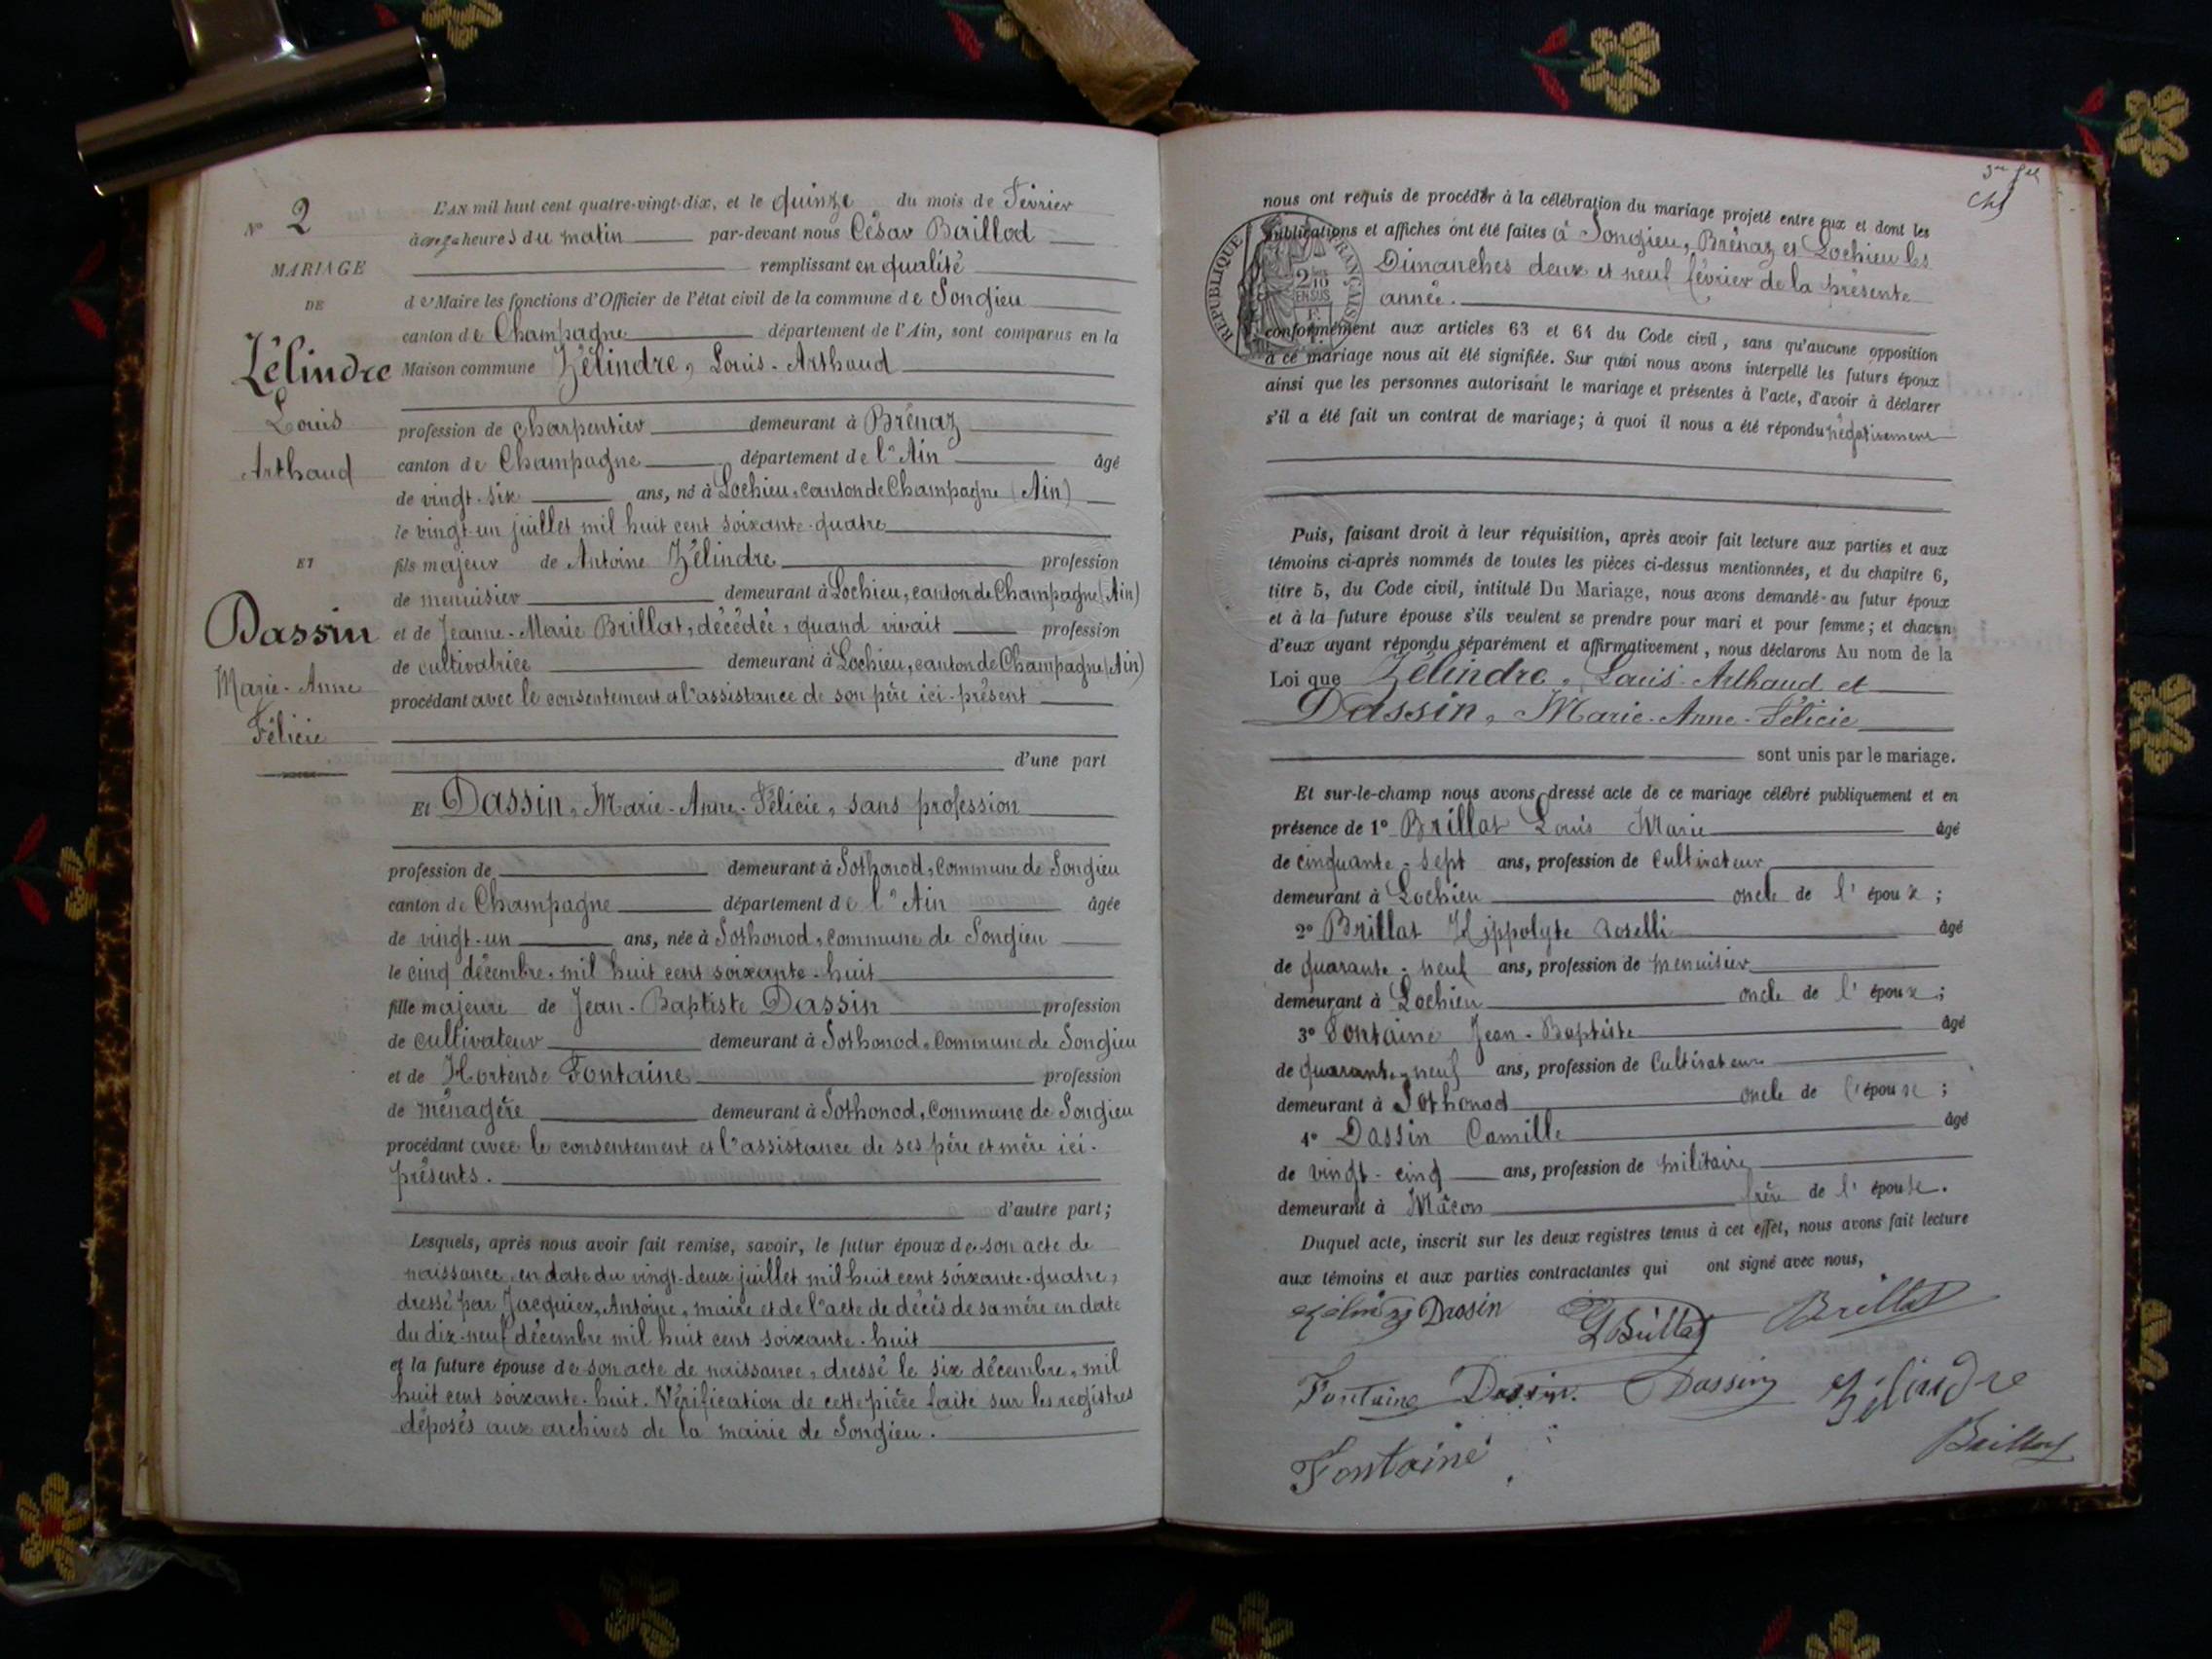 N° 2
MARIAGE
DE
Zélindre
Louis
Arthaud
ET
Dassin
Marie-Anne
Félicie
L'AN mil huit cent quatre-vingt-dix, et le quinze du mois de Février
à onze heures du matin par-devant nous César Baillod
remplissant en qualité
de Maire les fonctions d'Officier de l'état civil de la commune de Songieu
canton de Champagne département de l'Ain, sont comparus en la
Maison commune Zélindre, Louis-Arthaud
profession de charpentier demeurant à Brénaz
canton de Champagne département de l'Ain âgé
de vingt-six ans, né à Lochieu, canton de Champagne (Ain)
le vingt-un juillet mil huit cent soixante-quatre
fils majeur de Antoine Zélindre profession
de menuisier demeurant à Lochieu, canton de Champagne (Ain)
et de Jeanne-Marie Brillat, décédée, quand vivait profession
de cultivatrice demeurant à Lochieu, canton de Champagne (Ain)
procédant avec le consentement et l'assistance de son père ici-présent
d'une part
Et Dassin, Marie-Anne-Félicie, sans profession
profession de demeurant à Sothonod, commune de Songieu
canton de Champagne département de l'Ain âgée
de vingt-un ans, née à Sothonod, commune de Songieu
le cinq décembre, mil huit cent soixante-huit
fille majeure de Jean-Baptiste Dassin profession
de cultivateur demeurant à Sothonod, commune de Songieu
et de Hortense Fontaine profession
de ménagère demeurant à Sothonod, commune de Songieu
procédant avec le consentement et l'assistance de ses père et mère ici-
présents.
d'autre part;
Lesquels, après nous avoir fait remise, savoir, le futur époux de son acte de
naissance, en date du vingt-deux juillet mil huit cent soixante-quatre,
dressé par Jacquier, Antoine, maire et de l'acte de décès de sa mère en date
du dix-neuf décembre mil huit cent soixante-huit
et la future épouse de son acte de naissance, dressé le six décembre, mil
huit cent soixante-huit. Vérification de cette pièce faite sur les registres
déposés aux archives de la mairie de Songieu.
nous ont requis de procéder à la célébration du mariage projeté entre eux et dont les
publications et affiches ont été faites à Songieu, Brénaz et Lochieu les
Dimanches deux et neuf février de la présente
année.
RÉPUBLIQUE FRANÇAISE
2/10 EN SUS
conformément aux articles 63 et 64 du Code civil, sans qu'aucune opposition
à ce mariage nous ait été signifiée. Sur quoi nous avons interpellé les futurs époux
ainsi que les personnes autorisant le mariage et présentes à l'acte, d'avoir à déclarer
s'il a été fait un contrat de mariage; à quoi il nous a été répondu négativement
Puis, faisant droit à leur réquisition, après avoir fait lecture aux parties et aux
témoins ci-après nommés de toutes les pièces ci-dessus mentionnées, et du chapitre 6,
titre 5, du Code civil, intitulé Du Mariage, nous avons demandé au futur époux
et à la future épouse s'ils veulent se prendre pour mari et pour femme; et chacun
d'eux ayant répondu séparément et affirmativement, nous déclarons Au nom de la
Loi que Zélindre, Louis-Arthaud et
Dassin, Marie-Anne-Félicie
sont unis par le mariage.
Et sur-le-champ nous avons dressé acte de ce mariage célébré publiquement et en
présence de 1° Brillat Louis Marie âgé
de cinquante-sept ans, profession de Cultivateur
demeurant à Lochieu oncle de l'époux;
2° Brillat Hippolyte Roselli âgé
de quarante-neuf ans, profession de menuisier
demeurant à Lochieu oncle de l'époux;
3° Fontaine Jean-Baptiste âgé
de quarante-neuf ans, profession de Cultivateur
demeurant à Sothonod oncle de l'épouse;
4° Dassin Camille âgé
de vingt-cinq ans, profession de militaire
demeurant à Mâcon frère de l'épouse.
Duquel acte, inscrit sur les deux registres tenus à cet effet, nous avons fait lecture
aux témoins et aux parties contractantes qui ont signé avec nous,
Zélindre Dassin Brillat Brillat
Fontaine Dassin. Dassin Zélindre
Baillod
Fontaine